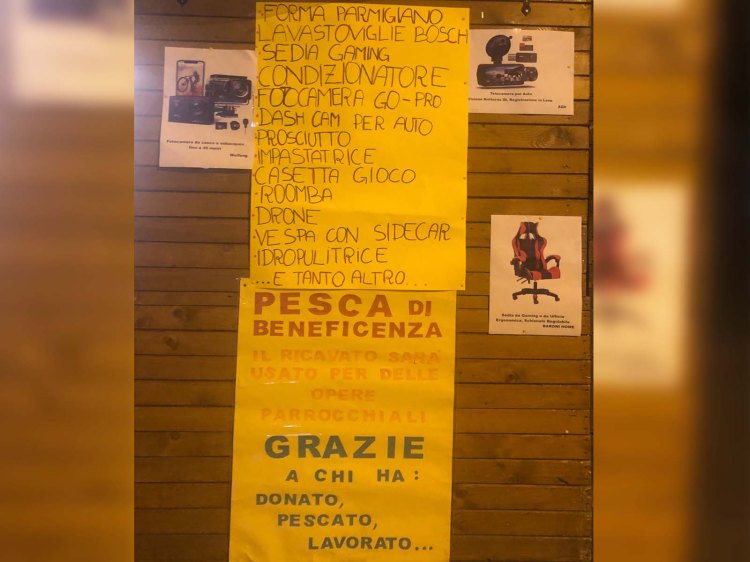 ·FORMA PARMIGIANO
·LAVASTOVIGLIE BOSCH
·SEDIA GAMING
·CONDIZIONATORE
·FOTOCAMERA GO-PRO
·DASH CAM PER AUTO
·PROSCIUTTO
·IMPASTATRICE
·CASETTA GIOCO
·ROOMBA
·DRONE
·VESPA CON SIDECAR
·IDROPULITRICE
...E TANTO ALTRO...
PESCA DI
BENEFICENZA
IL RICAVATO SARÀ
USATO PER DELLE
OPERE
PARROCCHIALI
GRAZIE
A CHI HA:
DONATO,
PESCATO,
LAVORATO...
Fotocamera da casco e subacquea
fino a 40 metri
Telecamera per Auto
Visione Notturna IR, Registrazione in Loop
Sedia da Gaming e da Ufficio
Ergonomica, Schienale Regolabile
BARDINI HOME